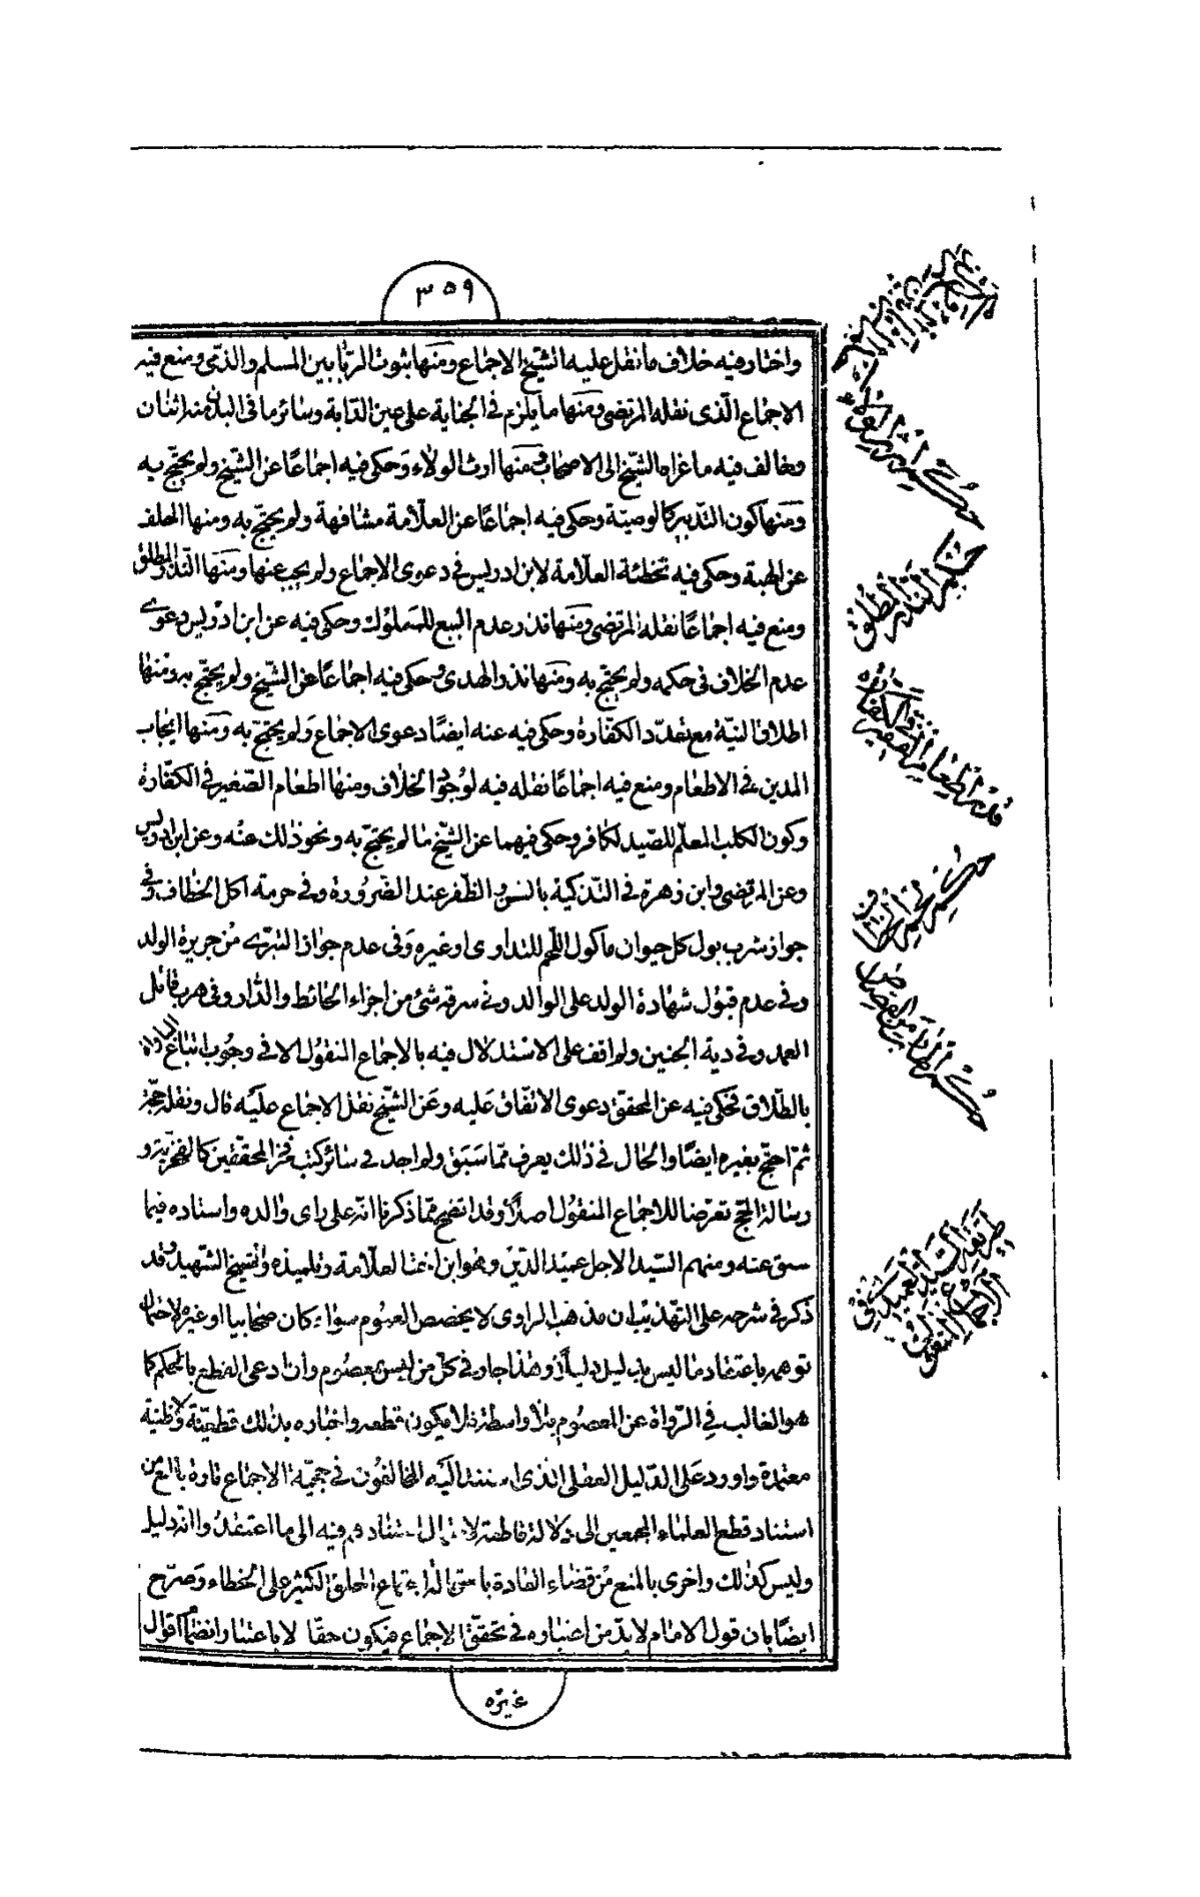 ٣٥٩
واختار فيه خلاف ما نقل عليه الشيخ الاجماع ومنها ثبوت الربا بين المسلم والذمى ومنع فيه
الاجماع الذى نقله المرتضى ومنها ما يلزم فى الجناية على عين الدابة وسائر ما فى البدن منه اثنان
وخالف فيه ما عزاه الشيخ الى الاصحاب ومنها ارث الولاء وحكى فيه اجماعا عن الشيخ ولم يحتج به
ومنها كون التدبير كالوصية وحكى فيه اجماعا عن العلامة مشافهة ولم يحتج به ومنها الحلف
عن الهبة وحكى فيه تخطئة العلامة لابن ادريس فى دعوى الاجماع ولم يجب عنها ومنها النذر المطلق
ومنع فيه اجماعا نقله المرتضى ومنها نذر عدم البيع للمملوك وحكى فيه عن ابن ادريس دعوى
عدم الخلاف فى حكمه ولم يحتج به ومنها نذر الهدى وحكى فيه اجماعا عن الشيخ ولم يحتج به ومنها
اطلاق النية مع تعدد الكفارة وحكى فيه عنه ايضا دعوى الاجماع ولم يحتج به ومنها ايجاب
المدين فى الاطعام ومنع فيه اجماعا نقله فيه لوجود الخلاف ومنها اطعام الصغير فى الكفارة
وكون الكلب المعلم للصيد لكافر وحكى فيهما عن الشيخ ما لم يحتج به ونحو ذلك عنه وعن ابن ادريس
وعن المرتضى وابن زهرة فى التذكية بالسن والظفر عند الضرورة وفى حرمة اكل الخطاف وفى
جواز شرب بول كل حيوان ماكول اللحم للتداوى او غيره وفى عدم جواز التبرى من جريرة الولد
وفى عدم قبول شهادة الولد على الوالد وفى سرقة شئ من اجزاء الحائط والدار وفى هرب قاتل
العمد وفى دية الجنين ولم اقف على الاستدلال فيه بالاجماع المنقول الا فى وجوب اتباع
بالطلاق فحكى فيه عن المحقق دعوى الاتفاق عليه وعن الشيخ نقل الاجماع عليه قال ونقله حجة
ثم احتج بغيره ايضا والحال فى ذلك يعرف مما سبق ولم اجد فى سائر كتب فخر المحققين كالفخرية و
رسالة الحج تعرضا للاجماع المنقول اصلا وقد اتضح مما ذكرنا انه على راى والده واستاده فيما
سبق عنه ومنهم السيد الاجل عميد الدين وهو ابن اخت العلامة وتلميذه وشيخ الشهيد وقد
ذكر فى شرحه على التهذيب ان مذهب الراوى لا يخصص العموم سواء كان صحابيا او غيره لاحتمال
توهمه باعتقاد ما ليس بدليل دليلا وهذا جار فى كل من ليس بمعصوم وان ادعى القطع بالحكم كما
هو الغالب فى الرواة عن المعصوم بلا واسطة فلا يكون قطعه واخباره بذلك قطعية ولا ظنية
معتمدة واورد على الدليل العقلى الذى استند اليه المخالفون فى حجية الاجماع تارة بالمنع من
استناد قطع العلماء المجمعين الى دلالة قاطعة لاحتمال استنادهم فيه الى ما اعتقدوا انه دليل
وليس كذلك واخرى بالمنع من قضاء العادة باستحالة اجتماع الخلق الكثير على الخطاء وصرح
ايضا بان قول الامام لا بد من اعتباره فى تحقق الاجماع فيكون حقا لا باعتبار انضمام اقوال
غيره
حكم ارث الولاء
حكم النذر المطلق
قدر اطعام الصغير فى الكفارة
طريقة السيد العميد فى الاجماع المنقول